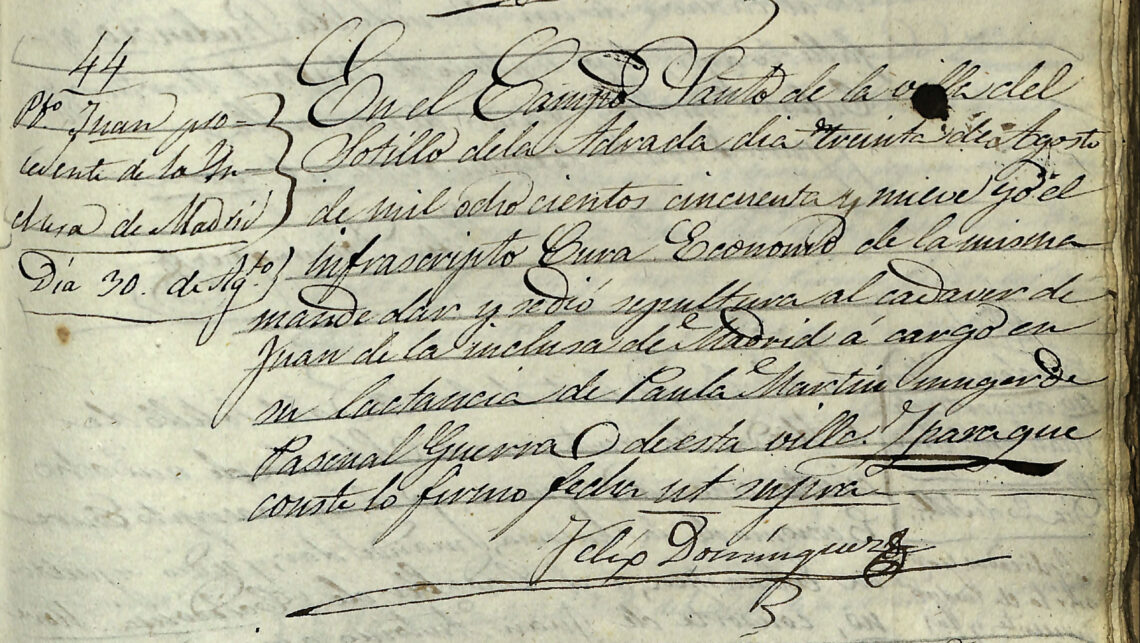 44
Pbo Juan pro-
cedente de la Yn-
clusa de Madrid
Dia 30. de Agto
En el Campo Santo de la villa del
Sotillo dela Adrada dia treinta de Agosto
de mil ocho cientos cincuenta y nueve yo el
infrascripto Cura Economo de la misma
mande dar y sedió sepultura al cadaver de
Juan de la inclusa de Madrid á cargo en
su lactancia de Paula Martin muger de
Pascual Guerra de esta villa. Y para que
conste lo firmo fecha ut supra
Felix Dominguez